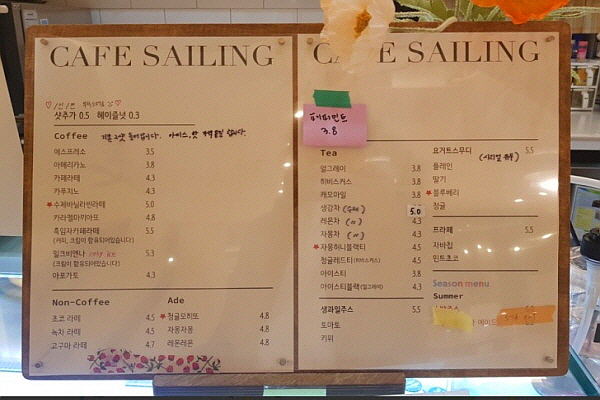 CAFE SAILING
샷추가 0.5 헤이즐넛 0.3
Coffee
에스프레소 3.5
아메리카노 3.8
카페라떼 4.3
카푸치노 4.3
수제바닐라빈라떼 5.0
카라멜마끼아또 4.8
흑임자카페라떼 5.5
(커피, 크림이 함유되어있습니다)
밀크비엔나 5.3
(크림이 함유되어있습니다)
아포가토 4.3
Non-Coffee
초코 라떼 4.5
녹차 라떼 4.5
고구마 라떼 4.7
Ade
청귤모히또 4.8
자몽자몽 4.8
레몬레몬 4.8
CAFE SAILING
페퍼민트
3.8
Tea
얼그레이 3.8
히비스커스 3.8
캐모마일 3.8
생강차 5.0
레몬차 4.3
자몽차 4.3
자몽허니블랙티 4.5
청귤레드티(히비스커스) 4.5
아이스티 3.8
아이스티블랙(얼그레이) 4.3
생과일주스 5.5
토마토
키위
요거트스무디 5.5
플레인
딸기
블루베리
청귤
프라페 5.5
자바칩
민트초코
Season menu
Summer